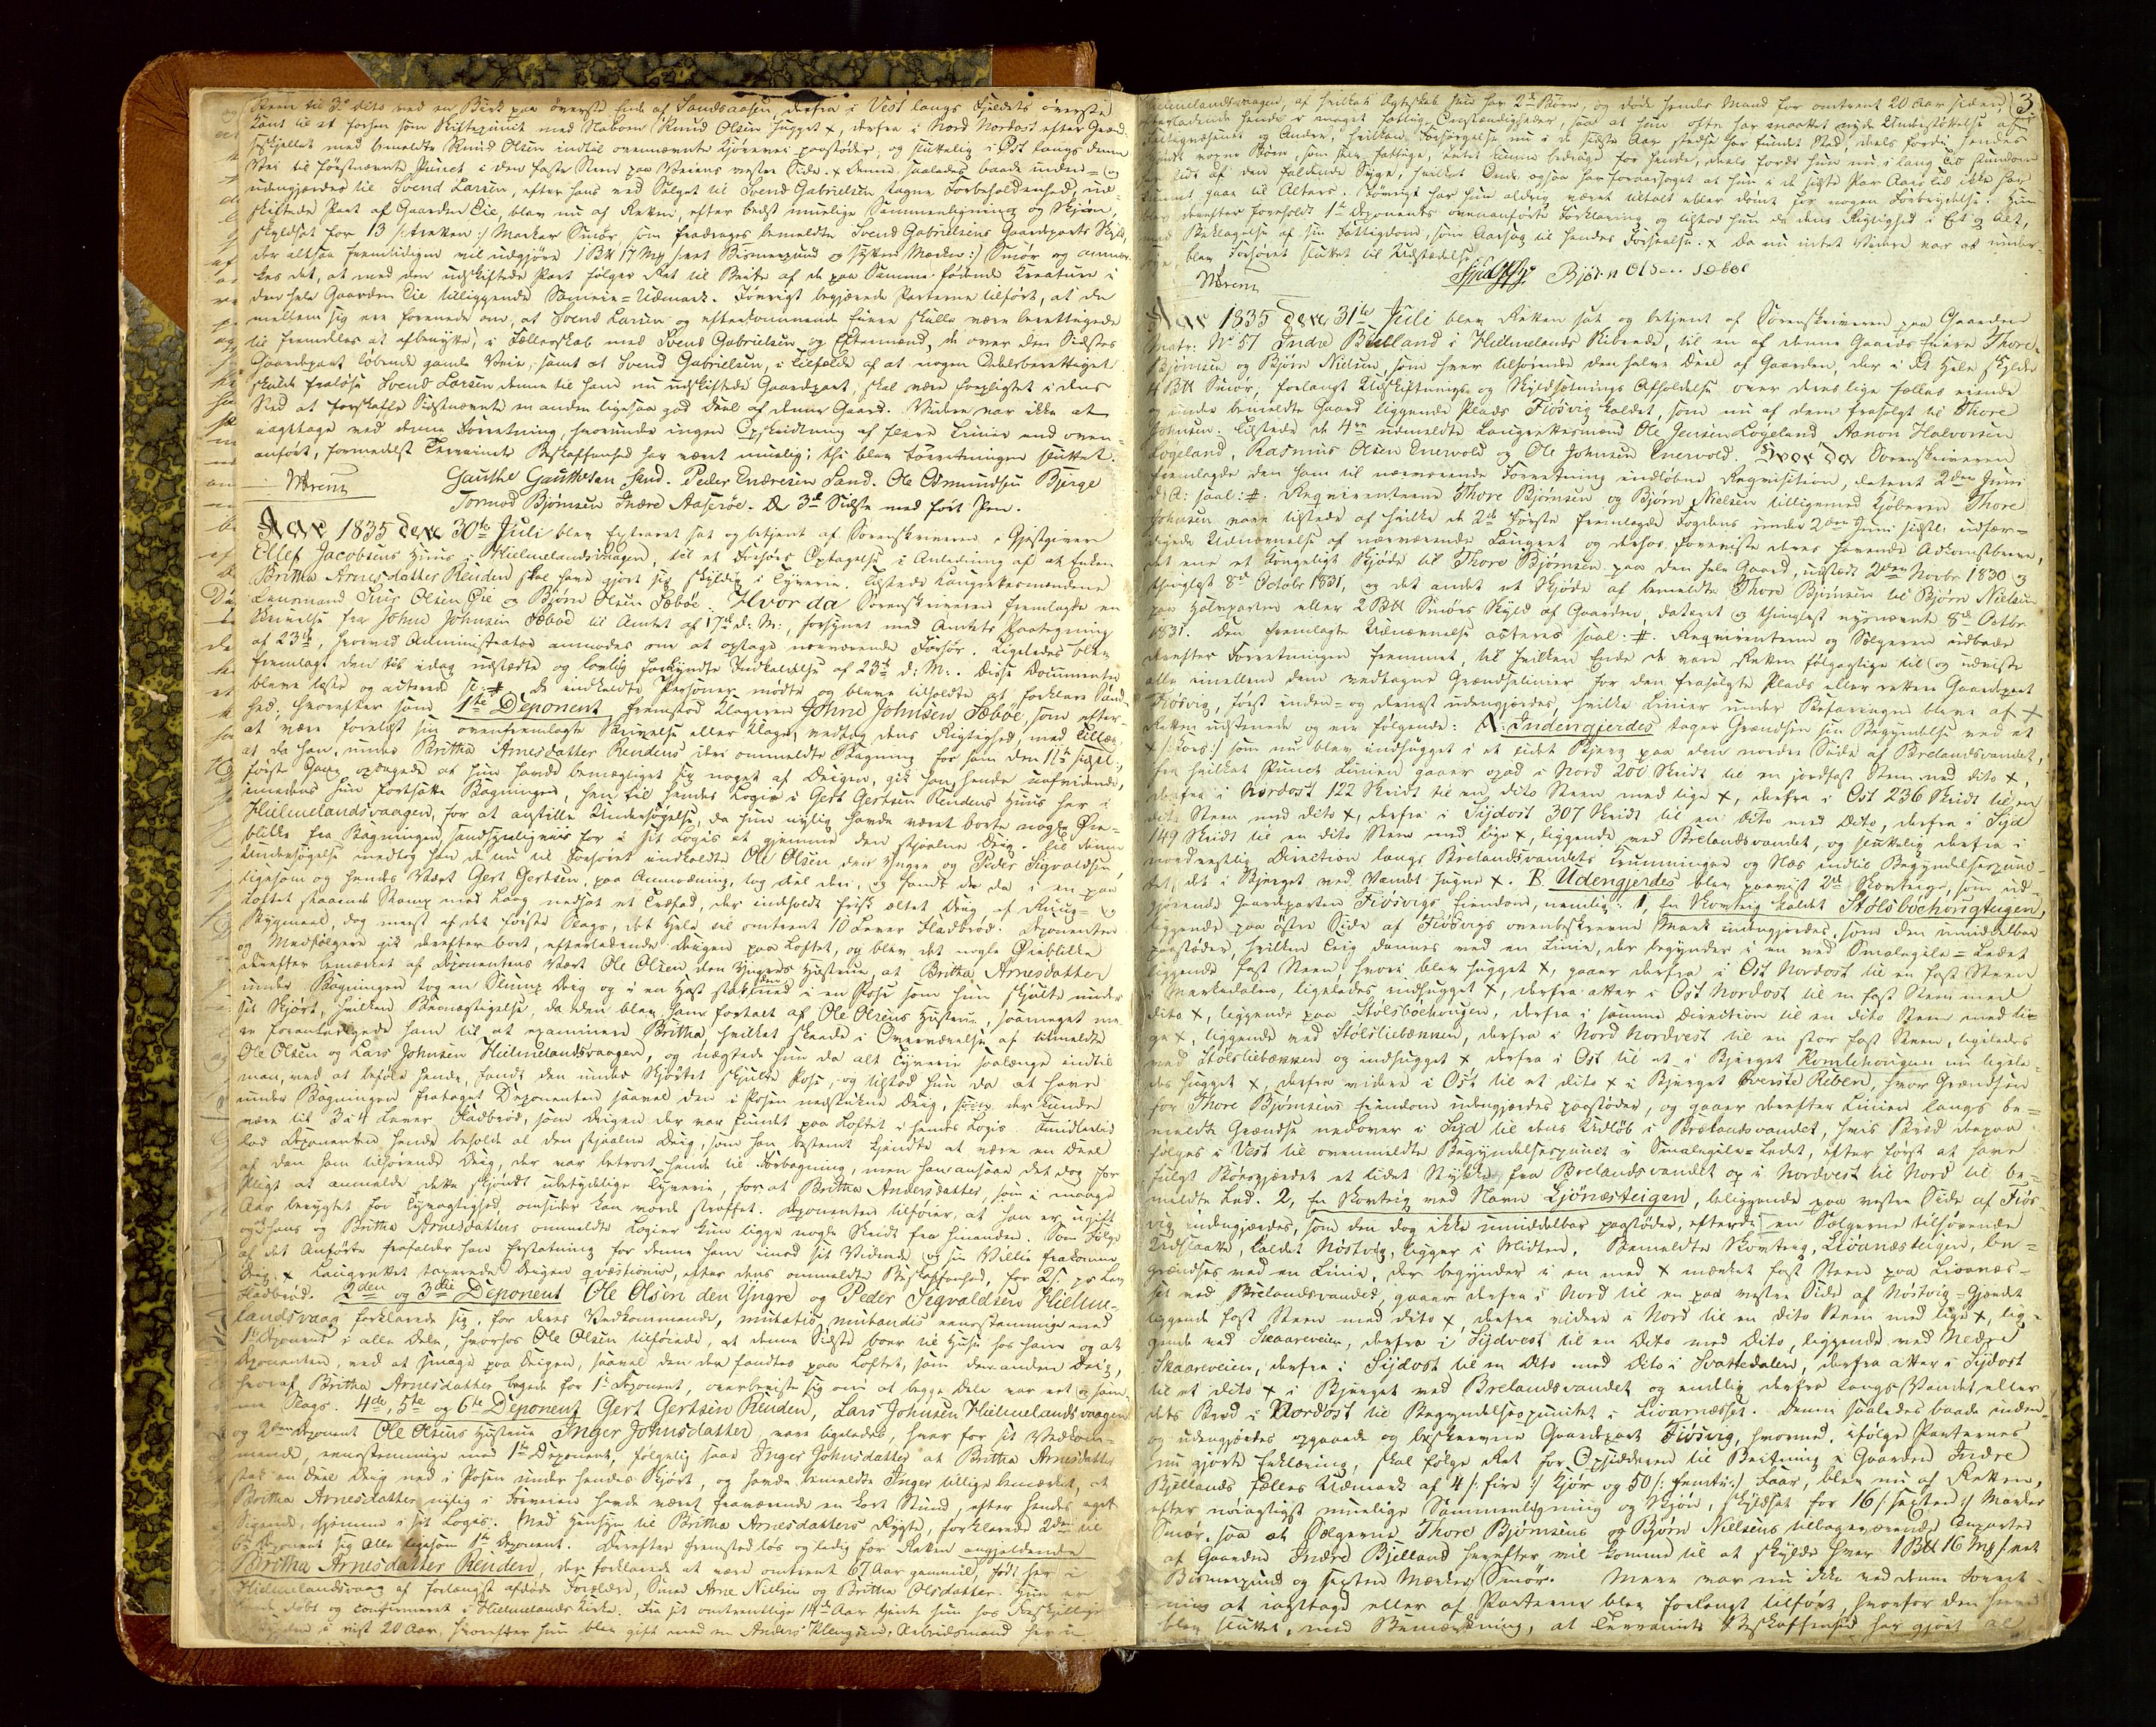 Steen til 3de dito ved en Birk paa øverste Ende af Sandsaasen, derfra i Vest langs Fjeldets øverste
Kant til et Forhen som Skiftepunct med Naboen Knud Olsen hugget +, derfra i Nord Nordost efter Grænd-
seskjellet med bemeldte Knud Olsen indtil ovennævnte Kjørevei paastøder, og sluttelig i Øst langs denne
Vei til førstnævnte Punct i den faste Steen paa Veiens vestre Side. + Denne saaledes baade inden= og
udengjærdes til Svend Larsen, efter hans ved Salget til Svend Gabrielsen tagne Forbeholdenhed, ud-
skiftede Part af Gaarden Eie, blev nu af Retten, efter bedst muelige Sammenligning og Skjøn,
skyldsat for 13 /: tretten :/ Marker Smør som fradrages bemeldte Svend Gabrielsens Gaardparts Skyld,
der altsaa fremtidigen vil udgjøre 1 Bpd 17 Mk /: eet Bismerpund og sytten Mærker :/ Smør og anmær-
kes det, at med den udskiftede Part følger Ret til Beite af de paa Samme fødende Kreature i
den hele Gaarden Eie tilliggende Sameie=Udmark. Iøvrigt begjærede Parterne tilført, at de
mellem sig ere forenede om, at Svend Larsen og efterkommende Eiere skulle være berettigede
til fremdeles at afbenytte, i Fællesskab med Svend Gabrielsen og Eftermænd, de over den Sidstes
Gaardepart løbende gamle Veie; samt at Svend Gabrielsen, i Tilfælde af at nogen Odelsberettiget
skulde fraløse Svend Larsen denne til ham nu udskiftede Gaardpart, skal være forpligtet i dens
Sted at forskaffe Sidstnævnte en anden ligesaa god Deel af denne Gaard. Videre var ikke at
iagttage ved denne Forretning, hvorunder ingen Opskridtning af flere Linier end oven-
anført, formedelst Terrainets Beskaffenhed har været muelig; thi blev Forretningen sluttet.
Gauthe Gauthesen Sand. Peder Endresen Sand. Ole Edmundsen Bjerge
Tormod Bjørnsen Indre Aaserøe. De 3de Sidste med ført Pen.
Aar 1835 den 30te Juli blev Extraret sat og betjent af Sorenskriveren i Gjæstgiver
Ellef Jacobsens Huus i Hielmelandsvaagen, til et Forhørs Optagelse i Anledning af at Enken
Britha Arnesdatter Renden skal have gjort sig skyldig i Tyverie. Tilstede Laugrettesmændene
Lensmand Siur Olsen Øie og Bjørn Olsen Sæbøe. Hvor da Sorenskriveren fremlagde en
Skrivelse fra Johne Johnsen Sæbøe til Amtet af 17de d: M:, forsynet med Amtets Paategning
af 23de, hvorved Administrator anmodes om at optage nærværende Forhør. Ligeledes blev
fremlagt den til idag udstædte og lovlig forkyndte Indkaldelse af 25de d: M:. Disse Documenter
bleve læste og acterede sl: #. De indkaldte Personer mødte og bleve tilholdte at forklare Sand-
hed, hvorefter som 1ste Deponent fremstod Klageren Johne Johnsen Sæbøe, som efter
at være forelagt sin ovenfremlagte Skrivelse eller Klage, vedtog dens Rigtighed, med Tillæg
at da han, under Britha Arnesdatter Rendens deri ommeldte Bagning for ham den 11te sidstl:,
første Gang opdagede at hun havde bemægtiget sig noget af Deigen, gik han hende uafvidende,
imedens hun fortsatte Bagningen, hen til hendes Logie i Gert Gertsen Rendens Huus her i
Hielmelandsvaagen, for at anstille Undersøgelse, da hun nylig havde været borte nogle Øie-
blikke fra Bagningen sandsynligviis for i sit Logis at gjemme den stjaalne Deig. Til denne
Undersøgelse medtog han de nu til Forhøret indkaldte Ole Olsen den Yngre og Peder Sigvaldsen,
ligesom og hendes Vært Gert Gertsen, paa Anmodning, tog Deel deri, og fandt de da i en paa
Loftet staaende Stamp med Laag nedsat et Træfad, der indholdt frisk æltet Deig, af Ruug= og
Bygmeel, dog meest af det første Slags, det Hele til omtrent 10 Lever Fladbrød. Deponenten
og Medfølgere gik derefter bort, efterladende Deigen paa Loftet, og blev det nogle Øieblikke
derefter bemærket af Deponentens Vært Ole Olsen den Yngres Hustrue, at Britha Arnesdatter
under Bagningen tog en Slump Deig og i en Hast stak den ned i en Pose som hun skjulte under
sit Skjørt, hvilken Bemægtigelse, da den blev ham fortalt af Ole Olsens Hustrue, saameget me-
re foranledigede ham til at examinere Britha, hvilket skeede i Overværelse af tilmeldte
Ole Olsen og Lars Johnsen Hielmelandsvaagen, og nægtede hun da alt Tyverie saalænge indtil
man, ved at beføle hende, fandt den under Skjørtet skjulte Pose, og tilstod hun da at have
under Bagningen frataget Deponenten saavel den i Posen nedstukne Deig, som der kunde
være til 3 a 4 Lever Fladbrød, som Deigen der var fundet paa Loftet i hendes Logis. Imidlertid
lod Deponenten hende beholde al den stjaalne Deig, som han bestemt kjendte at være en Deel
af den ham tilhørende Deig, der var betroet hende til Forbagning, men han ansaae det dog for
Pligt at anmelde dette skjøndt ubetydelige Tyverie, for at Britha Andersdatter, som i mange
Aar berygtet for Tyvagtighed, omsider kan vorde straffet. Deponenten tilføier, at han er ugift
og at hans og Britha Arnesdatters ommeldte Logier kun ligge nogle Skridt fra hinanden. Som Følge
af det Anførte frafalder han Erstatning for denne ham imod sit Vidende og sin Villie frakomne
Deig. + Laugrettet taxerede Deigen qvæstionis, efter dens ommeldte Beskaffenhed, for 2 s. pr Lev
Fladbrød. 2den og 3die Deponent Ole Olsen den Yngre og Peder Sigvaldsen Hielme-
landsvaag forklarede sig, for deres Vedkommende, mutatis mutandis eensstemmige med
1ste Deponent i alle Dele, hvorhos Ole Olsen tilføiede, at denne Sidste boer til Huse hos ham og at
Deponenten, ved at smage paa Deigen, saavel den der fandtes paa Loftet, som den anden Deig,
hvoraf Britha Arnesdatter bagede for 1ste Deponent, overbeviiste sig om at begge Dele var eet og sam-
me Slags. 4de, 5te og 6te Deponent Gert Gertsen Renden, Lars Johnsen Hielmelandsvaagen
og 2den Deponent Ole Olsens Hustrue Inger Johnsdatter, vare ligeledes, hver for sit Vedkom-
mende, eensstemmige med 1ste Deponent, følgelig saae Inger Johnsdatter at Britha Arnesdatter
stak en Deel Deig ned i Posen under hendes Skjørt, og havde bemeldte Inger tillige bemærket, at
Britha Arnesdatter nylig i Forveien havde været fraværende en kort Stund, efter hendes eget
Sigende, hjemme i sit Logis. Med Hensyn til Britha Arnesdatters Rygte, forklarede 2den til
6te Deponent sig alle ligesom 1ste Deponent. Derefter fremstod løs og ledig for Retten angjældende
Britha Arnesdatter Renden, der forklarede at være omtrent 67 Aar gammel, født her i
Hielmelandsvaag af forlængst afdøde Forældre, Smed Arne Nielsen og Britha Olsdatter. Hun er
døbt og confirmeret i Hielmelands Kirke. Fra sit omtrentlige 14de Aar tjente hun hos forskjellige
i vist 20 Aar, hvorefter hun blev gift med en Anders Klengsen, Arbeidsmand her i
3
Hielmelandsvaagen, af hvilket Ægteskab hun har 2de Børn, og døde hendes Mand for omtrent 20 Aar siden
efterladende hende i meget fattige Omstændigheder, saa at hun ofte har maattet nyde Understøttelse af
Fattigvæsenet og Andre, hvilken Forsørgelse nu i de sidste Aar stedse har fundet Sted, deels fordi hendes
voxne Børn, som selv fattige, intet kunne bidrage for hende, deels fordi hun nu i lang Tid stundom
lidt af den faldende Syge, hvilket Onde ogsaa har foraarsaget at hun i de sidste Par Aars Tid ikke har
kunnet gaae til Alters. Iøvrigt har hun aldrig været tiltalt eller dømt for nogen Forbrydelse. Hun
blev derefter foreholdt 1ste Deponents ovenanførte Forklaring og tilstod hun da dens Rigtighed i Eet og Alt,
med Beklagelse af sin Fattigdom, som Aarsag til hendes Forseelse. + Da nu intet Videre var at under-
søge, blev Forhøret sluttet til Udstædelse.
Bjørn Olsen Sebøe
Aar 1835 den 31te Juli blev Retten sat og betjent af Sorenskriveren paa Gaarden
Matr: No 51 Indre Bielland i Hielmelands Skibrede, til en af denne Gaards Eiere Thore
Bjørnsen og Bjørn Nielsen, som hver tilhørende den halve Deel af Gaarden, der i det Hele skylder
4 Bpd Smør, forlangt Udskiftnings= og Skyldsætnings Afholdelse over dens lige fælles eiende
og under bemeldte Gaard liggende Plads Fiøsvig kaldet, som nu af dem frasolgt til Thore
Johnsen. Tilstede de 4re udmeldte Laugrettesmænd Ole Jensen Løgeland, Aanon Halvorsen
Løgeland, Rasmus Olsen Enervold og Ole Johnsen Enervold. Hvor da Sorenskriveren
fremlagde den ham til nærværende Forretning indløbne Requisition, dateret 2den Juni
d: A: saal: #. Reqvirenterne Thore Bjørnsen og Bjørn Nielsen tilligemed Kjøberen Thore
Johnsen vare tilstede af hvilke de 2de Første fremlagde Fogdens under 2den Juni sidstl: udfær-
digede Udnævnelse af nærværende Laugret og derhos foreviste deres havende Adkomstbreve,
det ene et Kongeligt Skjøde til Thore Bjørnsen paa den hele Gaard, udstædt 2den Novbr 1830 og
thinglæst 8de Octobr 1831, og det andet et Skjøde af bemeldte Thore Bjørnsen til Bjørn Nielsen
paa Halvparten eller 2 Bpd Smørs Skyld af Gaarden, dateret og thinglæst nysnævnte 8de Octbr
1831. Den fremlagte Udnævnelse acteres saal: #. Reqvirenterne og Sælgerne udbade
derefter Forretningen fremmet, til hvilken Ende de vare Retten følgagtige til og udviste
alle imellem dem vedtagne Grændselinier for den frasolgte Plads eller rettere Gaardepart
Fiøsvig, først inden= og dernæst udengjerdes, hvilke Linier under Befaringen bleve af
Retten udstukne og ere følgende: A. Indengjerdes tager Grændsen sin Begyndelse ved et
+ /: Kors :/ som nu blev indhugget i et sidet Bjerg paa den nordre Side af Brelandsvandet,
fra hvilket Punct Linien gaaer opad i Nord 200 Skridt til en jordfast Steen med dito +,
derfra i Nordost 122 Skridt til en dito Steen med lige +, derfra i Øst 236 Skridt til en
dito Steen med dito +, derfra i Sydost 307 Skridt til en dito med dito, derfra i Syd
149 Skridt til en dito Steen med lige +, liggende ved Brelandsvandet, og sluttelig derfra i
nordvestlig Direction langs Brelandsvandets Krumninger og Næs indtil Begyndelsespunc-
tet, det i Bjerget ved Vandet hugne +. B. Udengjerdes blev paaviist 2de Skovteige, som ud-
gjørende Gaardeparten Fiøsvigs Eiendom, nemlig: 1, En Skovteig kaldet Stølsbøehougteigen,
liggende paa østre Side af Fiøsvigs ovenbeskrevne Mark indengjerdes, som den umiddelbar
paastøder, hvilken Teig dannes ved en Linie, der begynder i en ved Smalagile=Ledet
liggende fast Steen, hvori blev hugget +, gaaer derfra i Øst Nordost til en fast Steen
i Merkedalen, ligeledes indhugget +, derfra atter i Øst Nordost til en fast Steen med
dito +, liggende paa Stølsbøehougen, derfra i samme Direction til en dito Steen med li-
ge +, liggende ved Stølsliebækken, derfra i Nord Nordvest til en stor fast Steen, ligeledes
ved Stølsliebækken og indhugget +, derfra i Øst til et i Bjerget Romlehougen nu ligele-
des hugget +, derfra videre i Øst til et dito + i Bjerget Øverste Reben, hvor Grændsen
for Thore Bjørnsens Eiendom udengjerdes paastøder, og gaaer derefter Linien langs be-
meldte Grændse nedover i Syd til dens Udløb i Brelandsvandet, hvis Bred derpaa
følges i Vest til ovenmeldte Begyndelsespunct i Smalagile=Ledet, efter først at have
fulgt Bøesgjerdet et lidet Stykke fra Brelandsvandet op i Nordvest til Nord til be-
meldte Led. 2, En Skovteig ved Navn Ljønæsteigen, beliggende paa vestre Side af Fiøs-
vig indengjerdes, som den dog ikke umiddelbar paastøder, efterdi en Sælgerne tilhørende
Udslaatte, kaldet Nøstvig, ligger i Midten. Bemeldte Skovteig, Liøanæsteigen, be-
grændses ved en Linie, der begynder i en med + mærket fast Steen paa Lioanæs-
set ved Brelandsvandet, gaaer derfra i Nord til en paa vestre Side af Nøstvig=Gjerdet
liggende fast Steen med dito +, derfra videre i Nord til en dito Steen med lige +, lig-
gende ved Skaarveien, derfra i Sydvest til en dito med dito, liggende ved Nedre
Skaarveien, derfra i Sydost til en dito med dito i Svattedalen, derfra atter i Sydost
til et dito + i Bjerget ved Brelandsvandet og endelig derfra langs Vandet eller
dets Bred i Nordost til Begyndelsespunctet i Lioanæsset. Denne saaledes baade inden-
og udengjerdes opgaaede og beskrevne Gaardepart Fiøsvig, hvormed, ifølge Parternes
nu gjorte Erklæring, skal følge Ret for Opsidderen til Beitning i Gaarden Indre
Bjellands Fælles Udmark af 4 /: fire :/ Kjør og 50 /: femti :/ Faar, blev nu af Retten,
efter nøiagtigst muelige Sammenligning og Skjøn, skyldsat for 16 /: sexten :/ Marker
Smør, saa at Sælgerne Thore Bjørnsens og Bjørn Nielsens tilbageværende Anparter
af Gaarden Indre Bjelland herefter vil komme til at skylde hver 1 Bpd 16 Mk /: eet
Bismerpund og sexten Mærker :/ Smør. Mere var nu ikke ved denne Forret-
ning at iagttage eller af Parterne blev forlangt tilført, hvorfor den herved
blev sluttet, med Bemærkning, at Terrainets Beskaffenhed har gjort al